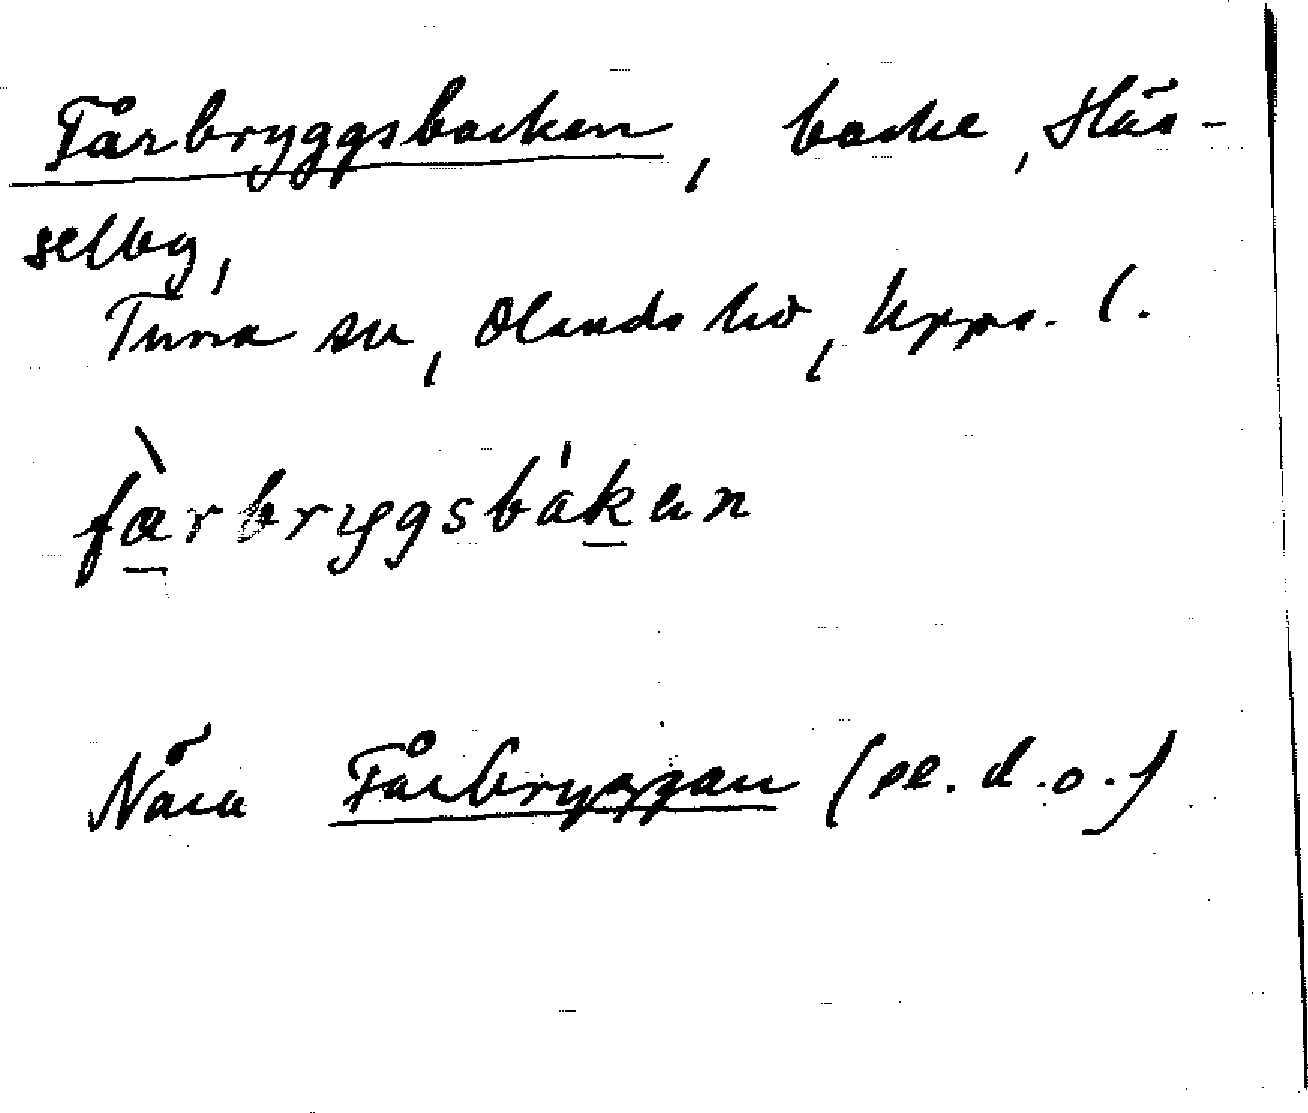 Fårbryggsbacken, backe, Häs-
selby,
Tuna sn, Olands hd, Upps. l.
fàrbrygsbákan
Nära Fårbryggan (se. d.o.)